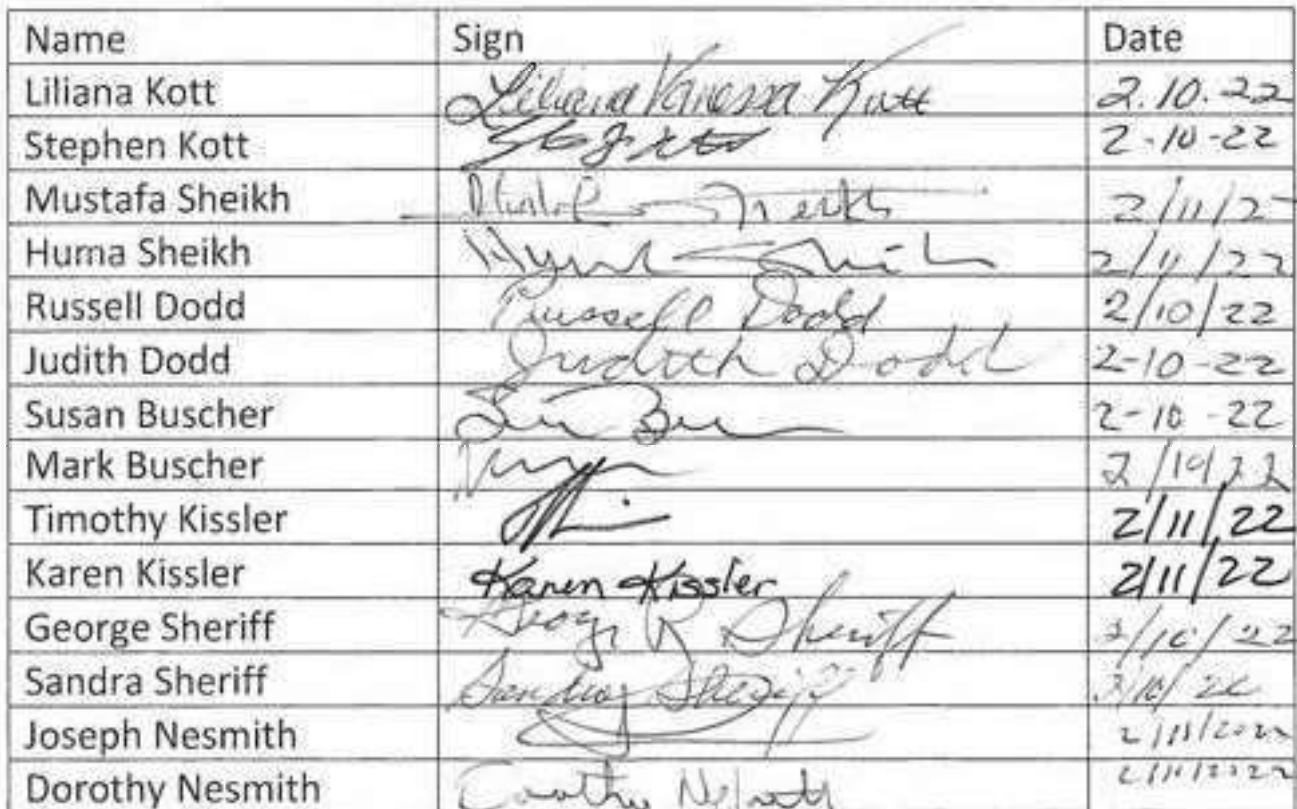 Name Sign Date
Liliana Kott Liliana Vanessa Kott 2.10.22
Stephen Kott 2-10-22
Mustafa Sheikh 2/11/22
Huma Sheikh 2/11/22
Russell Dodd Russell Dodd 2/10/22
Judith Dodd Judith Dodd 2-10-22
Susan Buscher 2-10-22
Mark Buscher 2/10/22
Timothy Kissler 2/11/22
Karen Kissler Karen Kissler 2/11/22
George Sheriff George R Sheriff 2/10/22
Sandra Sheriff Sandra Sheriff
Joseph Nesmith 2/11/2022
Dorothy Nesmith 2/11/2022